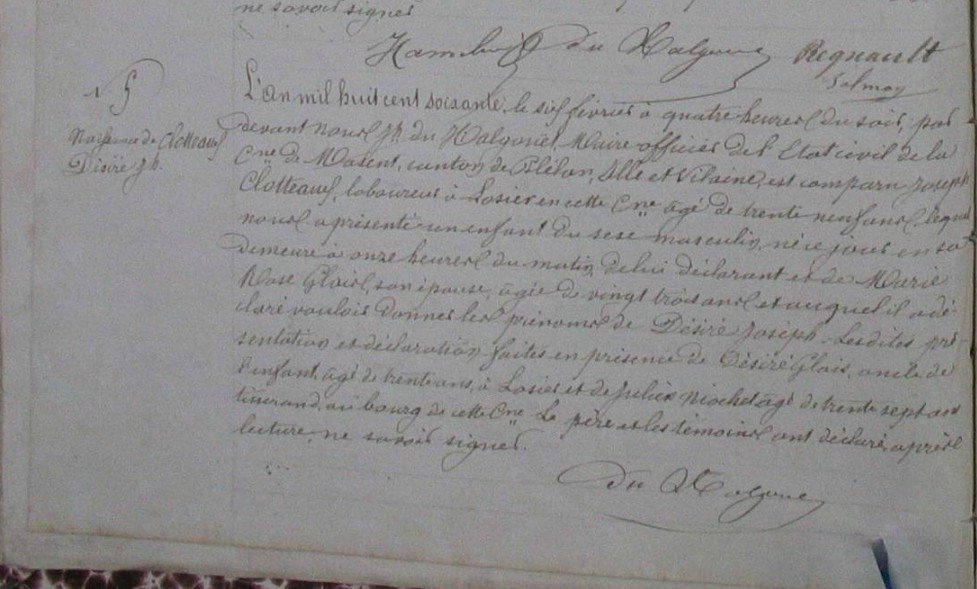 ne savoir signer
Hamon du Halgouet Regnault
Salmon
N 5
Naissance de Clotteaux
Désiré Jh.
L'an mil huit cent soixante, le six février à quatre heures du soir, par
devant nous Jh. du Halgouët, Maire officier de l'Etat civil de la
Cne de Maxent, canton de Plélan, Ille et Vilaine, est comparu Joseph
Clotteaux, laboureur à Losier en cette Cne âgé de trente neuf ans, lequel
nous a présenté un enfant du sexe masculin, né ce jour en sa
demeure à onze heures du matin, de lui déclarant et de Marie
Rose Glais, son épouse, âgée de vingt trois ans, et auquel il a dé-
claré vouloir donner les prénoms de Désiré Joseph. Lesdites pré-
sentation et déclaration faites en présence de Désiré Glais, oncle de
l'enfant, âgé de trente ans, à Losier et de Julien Piochel âgé de trente sept ans
tisserand, au bourg de cette Cne. Le père et les témoins ont déclaré, après
lecture, ne savoir signer.
du Halgouet